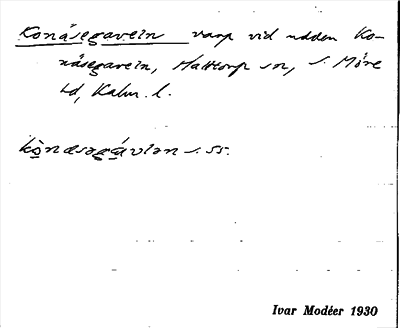 Konäsegaveln varp vid udden Ko-
näsegaveln, Halltorp sn, S. Möre
hd, Kalm. l.
kònæsəgávlən s. 55.
Ivar Modéer 1930